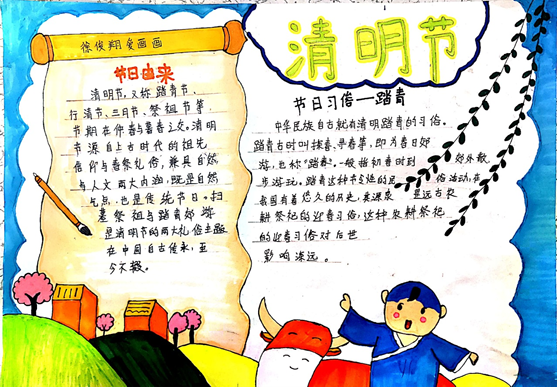 徐俊翔爱画画
节日由来
清明节,又称踏青节、
行清节、三月节、祭祖节等,
节期在仲春与暮春之交。清明
节源自上古时代的祖先
信仰与春祭礼俗,兼具自然
与人文两大内涵,既是自然
气点,也是传统节日。扫
墓祭祖与踏青郊游
是清明节的两大礼俗主题
在中国自古传承,至
今不辍。
清明节
节日习俗—踏青
中华民族自古就有清明踏青的习俗。
踏青古时叫探春、寻春等,即为春日郊
游,也称"踏春"。一般指初春时到 郊外散
步游玩。踏青这种节令性的民 俗活动,在
我国有着悠久的历史,其源泉 是远古农
耕祭祀的迎春习俗,这种农耕祭祀
的迎春习俗对后世
影响深远。